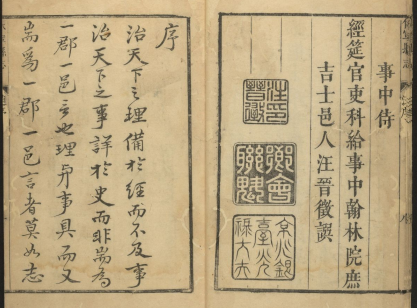 事中侍
經筵官吏科給事中翰林院庶
吉士邑人汪晉徵譔
汪印
晉徵
會
聯魁
序
治天下之理備於經而不及事
治天下之事詳於史而非耑為
一郡一邑言也理与事具而又
耑為一郡一邑言者莫如志